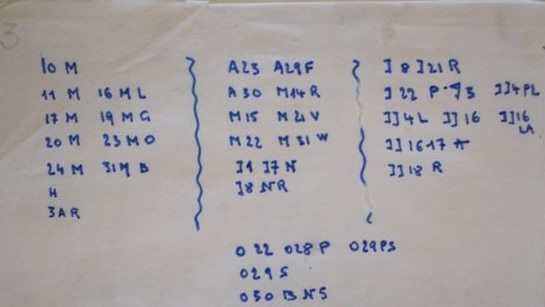 3
10 M
11 M 16 M L
17 M 19 M G
20 M 23 M O
24 M 31 M B
H
3 A R
A23 A29F
A 30 M14 R
M15 M21 V
M22 M31 W
J1 J7 N
J8 N R
J 8 J21 R
J 22 P J 3 JJ4 PL
JJ4 L JJ 16 JJ16 LA
JJ 16 17 A
JJ 18 R
O 22 O28 P O29 PS
O29 S
O30 B N5